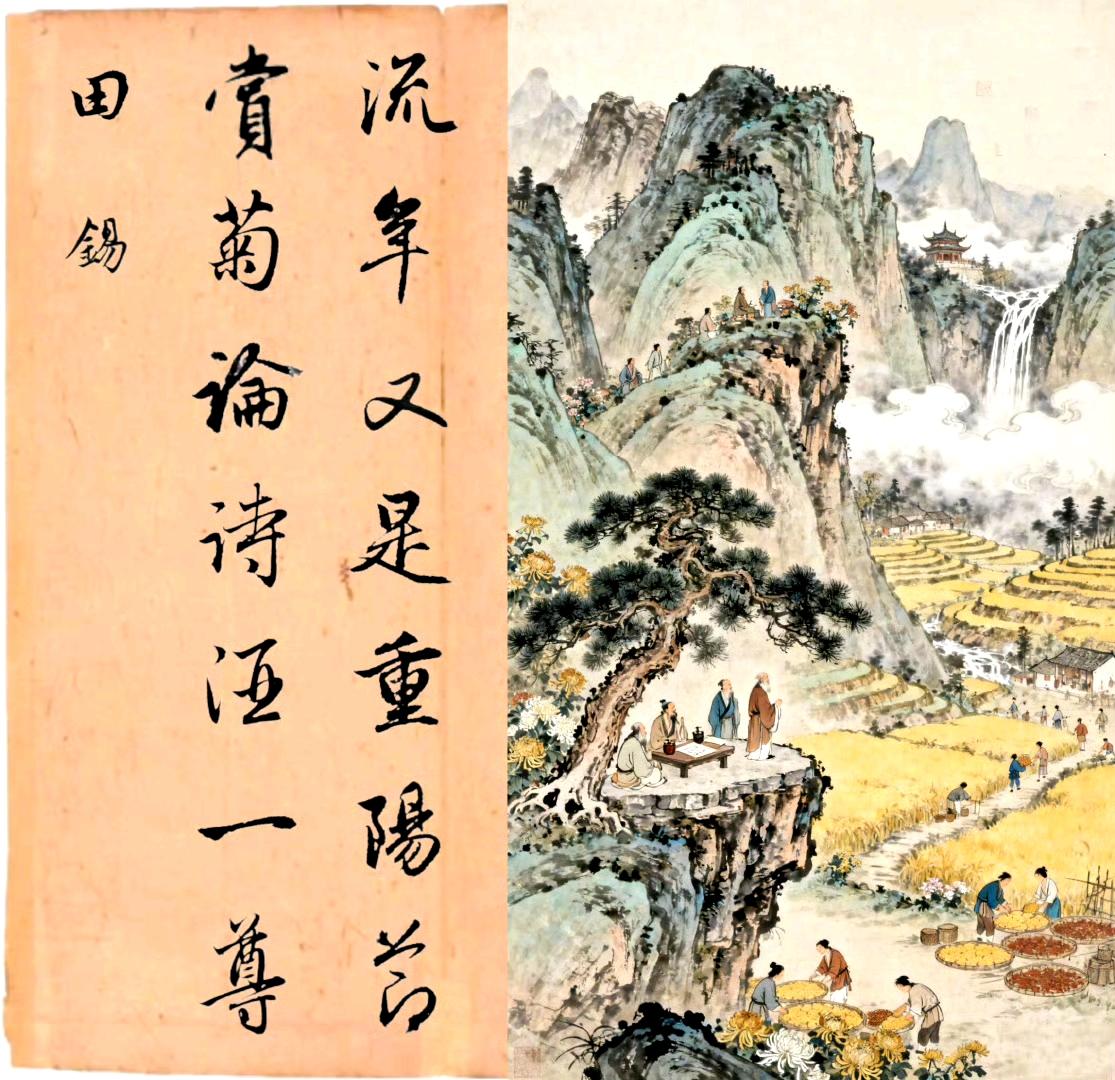 流年又是重陽節
賞菊論詩酒一尊
田錫